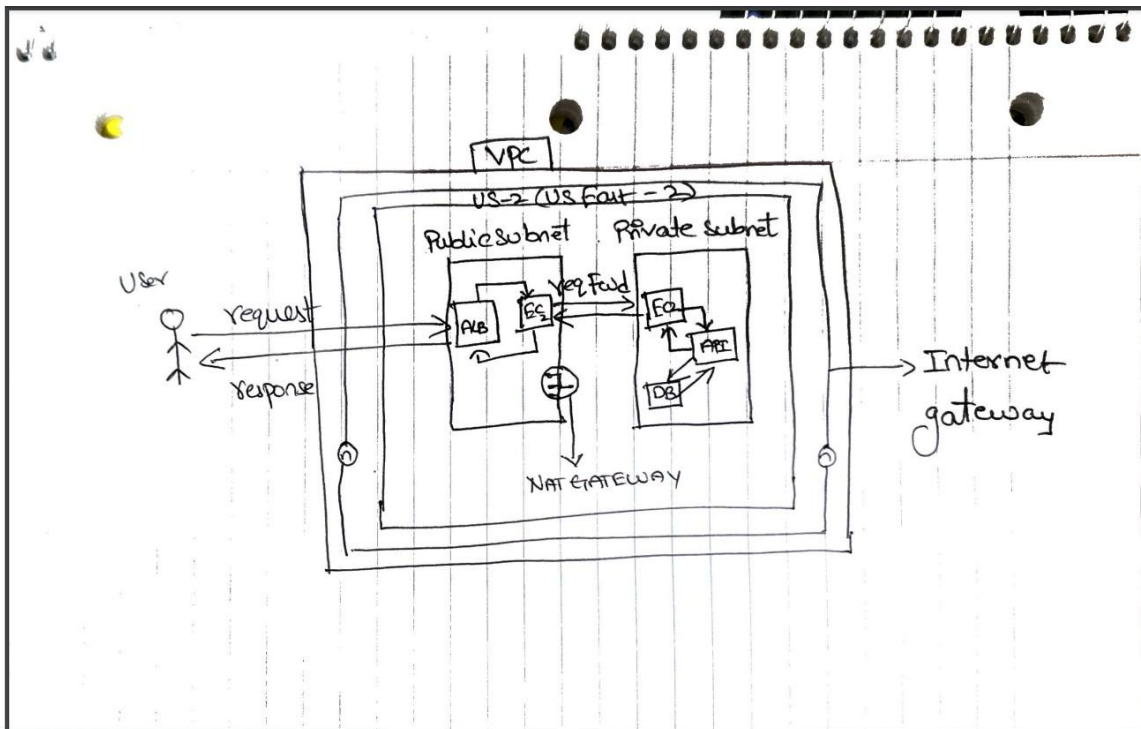 VPC
US-2 (US East - 2)
Public Subnet
Private Subnet
User
request
response
ALB
EC2
req Fwd
EC2
API
DB
NAT GATEWAY
Internet
gateway
n
n